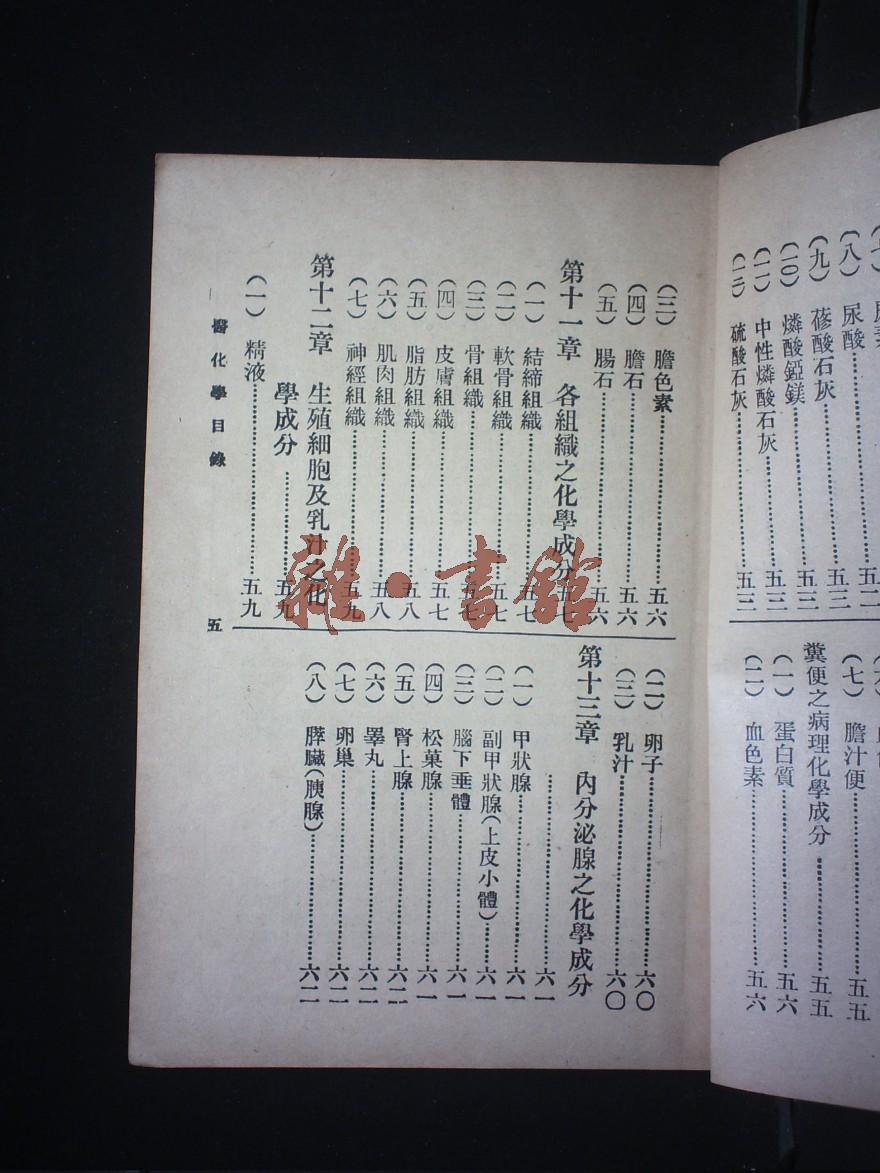 尿酸……五三
(九) 蓚酸石灰……五三
(一〇) 燐酸錏鎂……五三
(一一) 中性燐酸石灰……五三
(一二) 硫酸石灰……五三
(七) 膽汁便……五五
糞便之病理化學成分……五五
(一) 蛋白質……五六
(二) 血色素……五六
(三) 膽色素……五六
(四) 膽石……五六
(五) 腸石……五六
第十一章 各組織之化學成分 五七
(一) 結締組織……五七
(二) 軟骨組織……五七
(三) 骨組織……五七
(四) 皮膚組織……五七
(五) 脂肪組織……五八
(六) 肌肉組織……五八
(七) 神經組織……五九
第十二章 生殖細胞及乳汁之化
學成分……五九
(一) 精液……五九
(二) 卵子……六〇
(三) 乳汁……六〇
第十三章 內分泌腺之化學成分
……六一
(一) 甲狀腺……六一
(二) 副甲狀腺(上皮小體)……六一
(三) 腦下垂體……六一
(四) 松菓腺……六一
(五) 腎上腺……六二
(六) 睪丸……六二
(七) 卵巢……六二
(八) 膵臟(胰腺)……六二
醫化學目錄
五
雜·書館